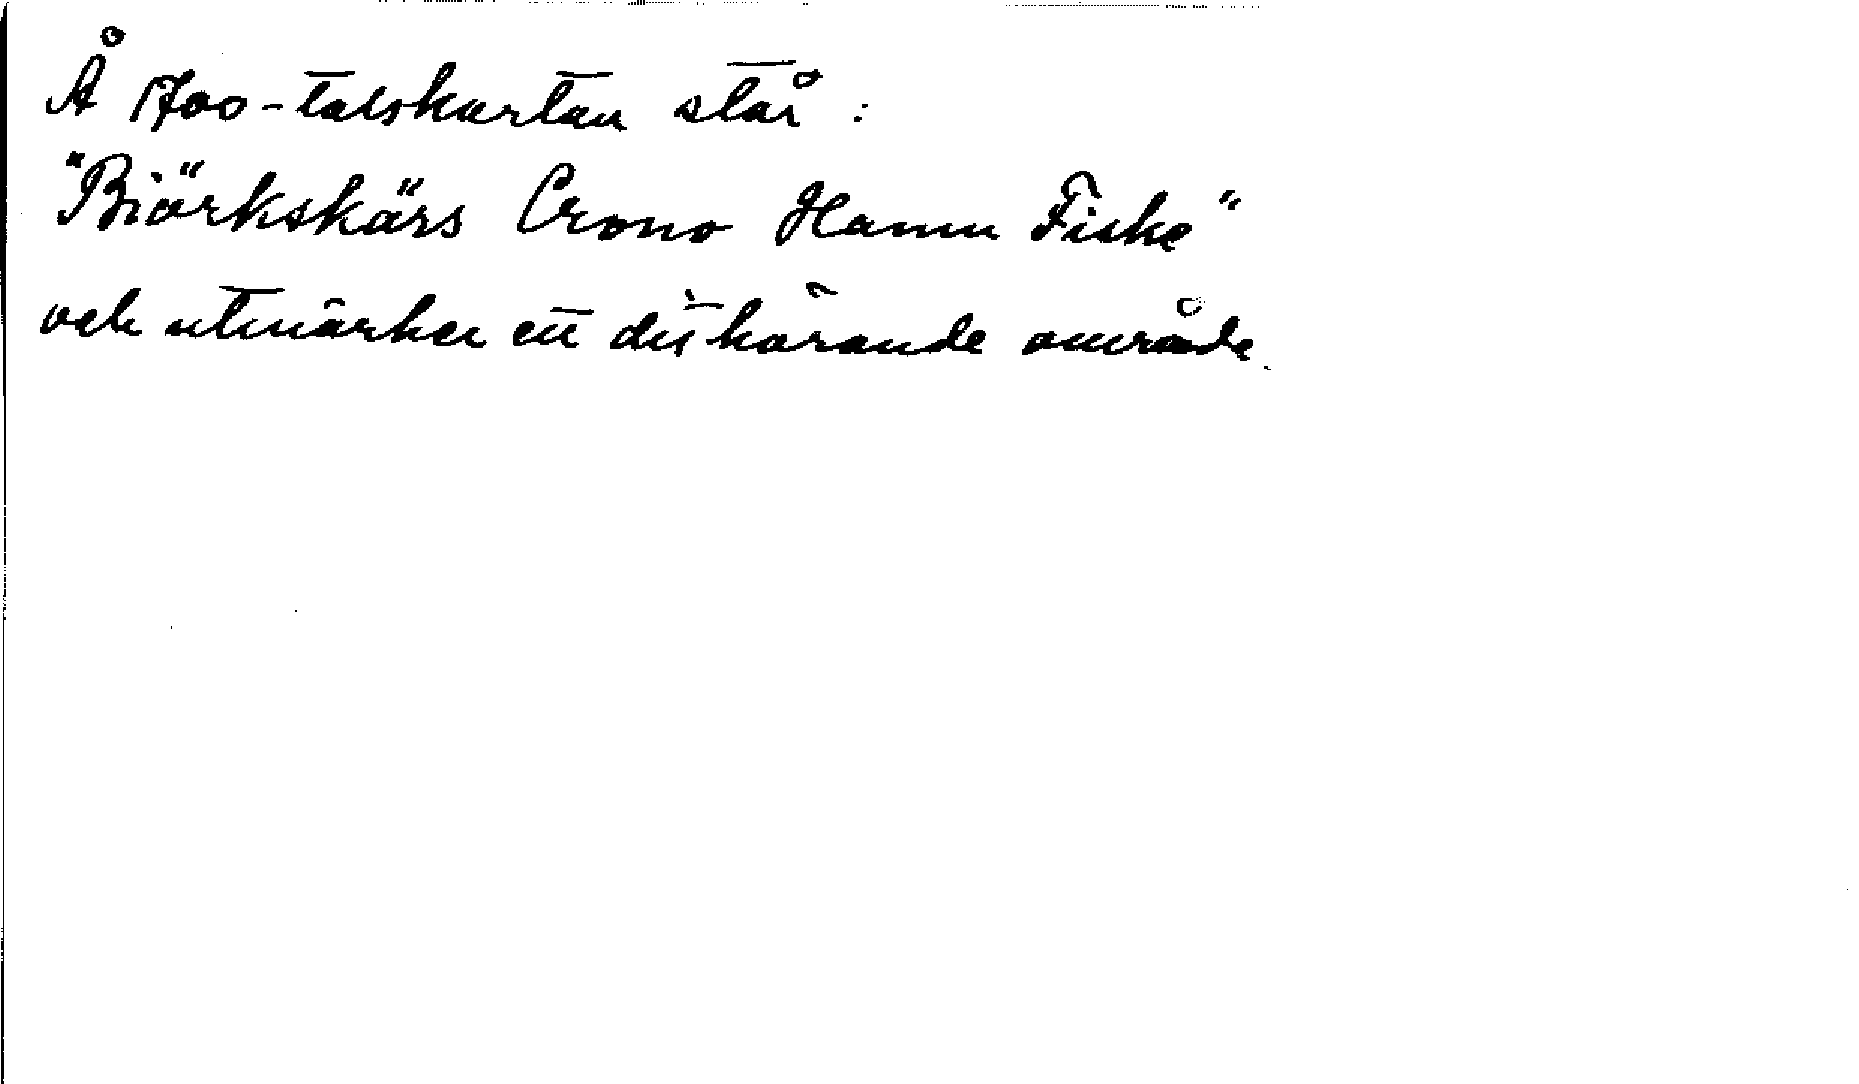 Å 1700-talskartan står :
"Biörkskärs Crono Hamn Fiske"
och utmärker ett dit hörande område.